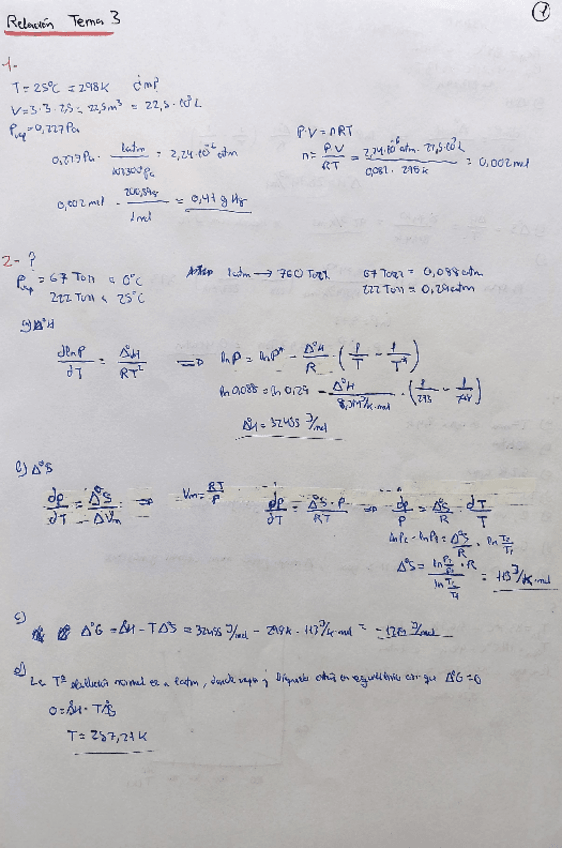 Relación Tema 3
1
1.
T = 25ºC = 298K
V = 3·3·2,5 = 22,5 m³ = 22,5·10³ L
Pvap = 0,227 Pa
0,227 Pa · 1 atm / 101300 Pa = 2,24·10⁻⁶ atm
P·V = nRT
n = P·V / RT = 2,24·10⁻⁶ atm · 22,5·10³ L / 0,082 · 298 K = 0,002 mol
0,002 mol · 200,59 g / 1 mol = 0,41 g Hg
2- ?
Pvap = 67 Torr a 0ºC
222 Torr a 25ºC
1 atm → 760 Torr
67 Torr = 0,088 atm
222 Torr = 0,29 atm
a) Δ°H
dlnP/dT = Δ°H/RT² ⟹ lnP = lnP* - Δ°H/R · (1/T - 1/T*)
ln 0,088 = ln 0,29 - Δ°H / 8,314 J/K·mol · (1/273 - 1/298)
Δ°H = 32455 J/mol
b) Δ°S
dp/dT = Δ°S/ΔVm ⟹ Vm = RT/P
dp/dT = Δ°S·P/RT ⟹ dp/P = Δ°S/R · dT/T
lnP2 - lnP1 = Δ°S/R · ln T2/T1
Δ°S = ln P2/P1 · R / ln T2/T1 = 113 J/K·mol
c) Δ°G = Δ°H - TΔ°S = 32455 J/mol - 298K · 113 J/K·mol =
d)
La Tª ebullición normal es a 1 atm, donde vapor y líquido están en equilibrio así que Δ°G = 0
0 = Δ°H - TΔ°S
T = 287,21 K